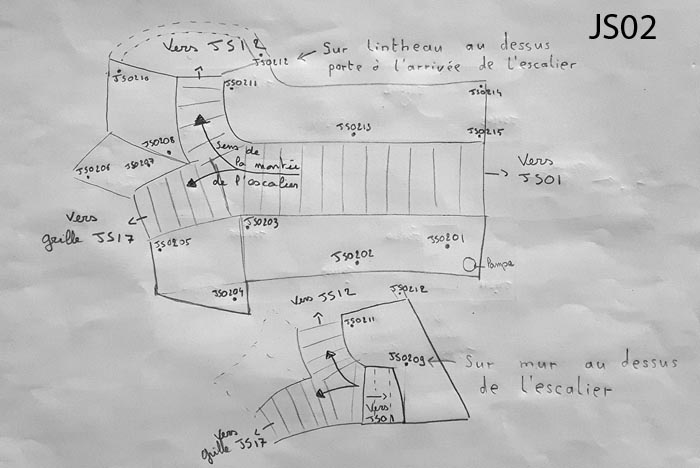 JS02
Vers JS12
JS0212
Sur lintheau au dessus
porte à l'arrivée de l'escalier
JS0210
JS0211
JS0214
JS0213
JS0215
JS0208
JS0207
JS0206
Sens de
la montée
de l'escalier
Vers
JS01
Vers
grille JS17
JS0203
JS0205
JS0201
JS0202
Pampe
JS0204
Vers JS12
JS0212
JS0211
JS0209
Sur mur au dessus
de l'escalier
Vers
JS01
Vers
grille JS17